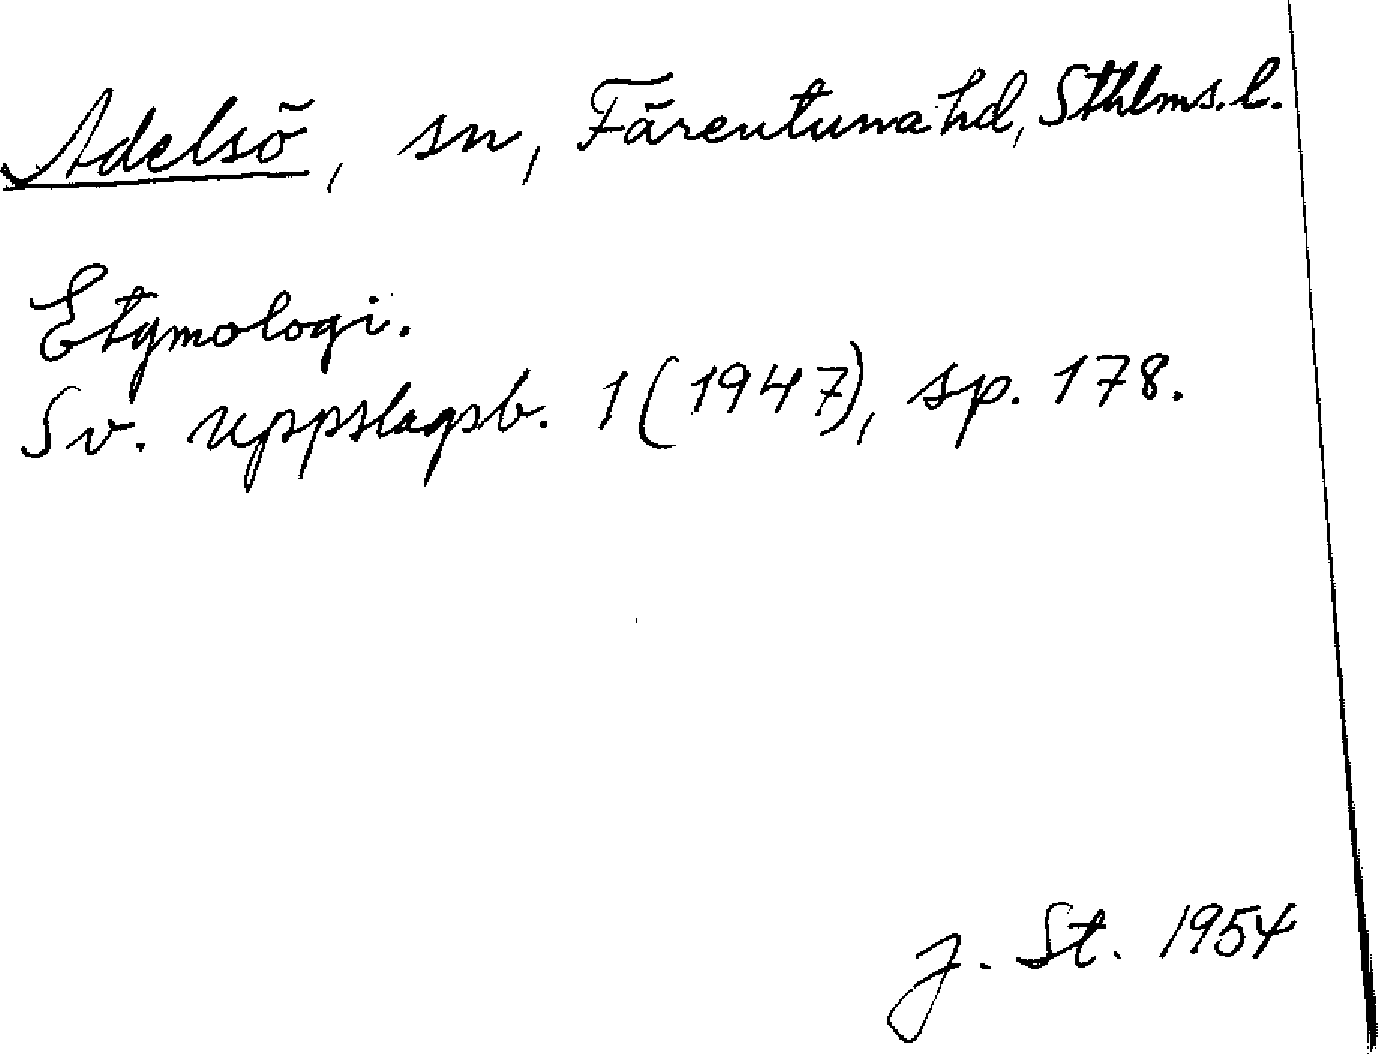 Adelsö, sn, Färentuna hd, Sthlms. l.
Etymologi.
Sv. uppslagsb. 1 (1947), sp. 178.
J. St. 1954